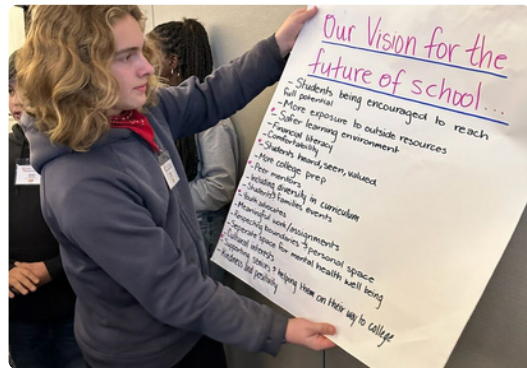 Our Vision for the
future of school...
- Students being encouraged to reach
full potential
- More exposure to outside resources
- Safer learning environment
- Financial literacy
- Comfortability
- Students heard, seen, valued
- More college prep
- Peer mentors
- Including diversity in curriculum
- Students' families events
- Youth advocates
- Meaningful work/assignments
- Respecting boundaries & personal space
- Seperate space for mental health well being
- Cultural interests
- Supporting seniors & helping them on their way to college
- Kindness and positivity